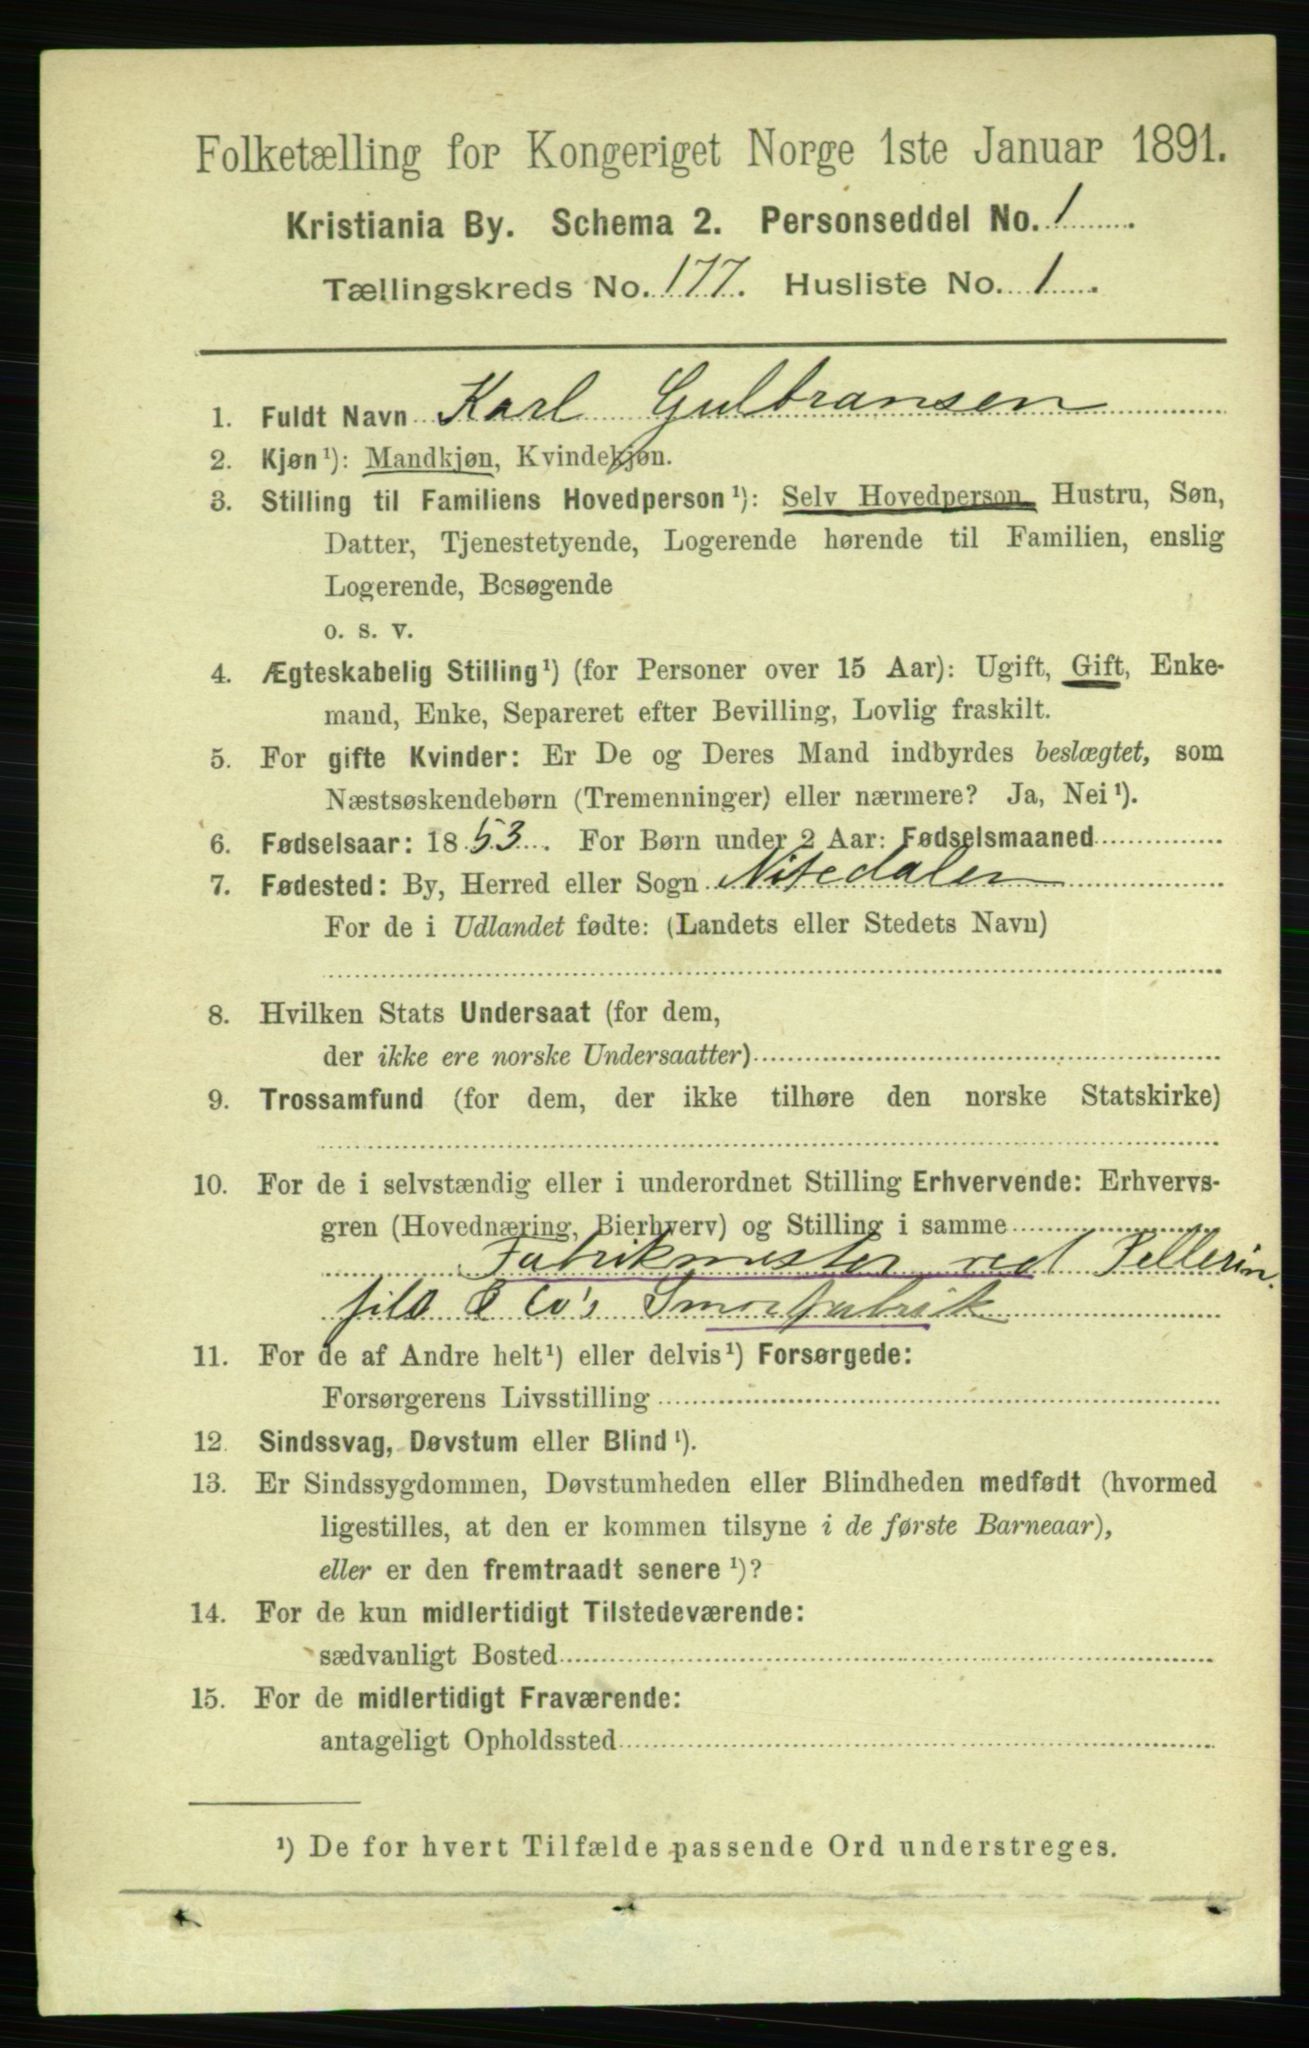 Folketælling for Kongeriget Norge 1ste Januar 1891.
Kristiania By. Schema 2. Personseddel No. 1
Tællingskreds No. 177. Husliste No. 1
1. Fuldt Navn Karl Gulbransen
2. Kjøn¹): Mandkjøn, Kvindekjøn.
3. Stilling til Familiens Hovedperson¹): Selv Hovedperson, Hustru, Søn,
Datter, Tjenestetyende, Logerende hørende til Familien, enslig
Logerende, Besøgende
o. s. v.
4. Ægteskabelig Stilling¹) (for Personer over 15 Aar): Ugift, Gift, Enke-
mand, Enke, Separeret efter Bevilling, Lovlig fraskilt.
5. For gifte Kvinder: Er De og Deres Mand indbyrdes beslægtet, som
Næstsøskendebørn (Tremenninger) eller nærmere? Ja, Nei¹).
6. Fødselsaar: 1853. For Børn under 2 Aar: Fødselsmaaned
7. Fødested: By, Herred eller Sogn Nitedalen
For de i Udlandet fødte: (Landets eller Stedets Navn)
8. Hvilken Stats Undersaat (for dem,
der ikke ere norske Undersaatter)
9. Trossamfund (for dem, der ikke tilhøre den norske Statskirke)
10. For de i selvstændig eller i underordnet Stilling Erhvervende: Erhvervs-
gren (Hovednæring, Bierhverv) og Stilling i samme
Fabrikmester ved Pellerin
fils & Co's Smørfabrik
11. For de af Andre helt¹) eller delvis¹) Forsørgede:
Forsørgerens Livsstilling
12. Sindssvag, Døvstum eller Blind¹).
13. Er Sindssygdommen, Døvstumheden eller Blindheden medfødt (hvormed
ligestilles, at den er kommen tilsyne i de første Barneaar),
eller er den fremtraadt senere¹)?
14. For de kun midlertidigt Tilstedeværende:
sædvanligt Bosted
15. For de midlertidigt Fraværende:
antageligt Opholdssted
¹) De for hvert Tilfælde passende Ord understreges.